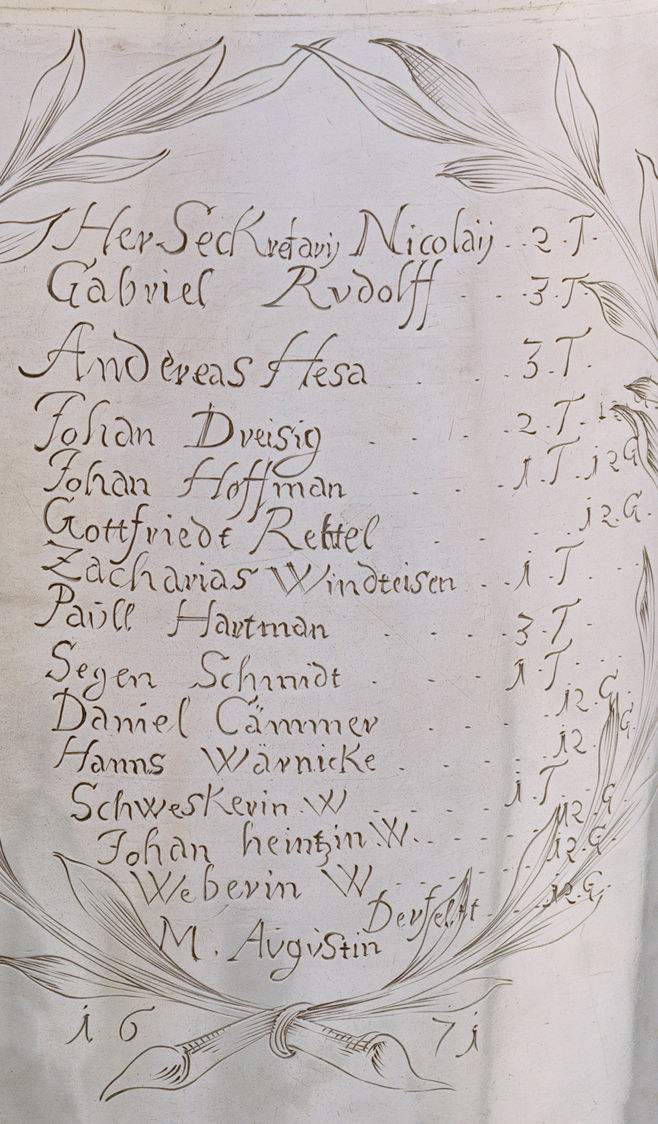 Her SecKretarij Nicolaij . . 2 . T .
Gabriel Rvdolff . . . 3 . T .
Andereas Hesa . . . 3 . T .
Johan Dreisig . . . . 2 . T . 12 . G
Johan Hoffman . . . 1 . T . 12 G
Gottfriedt Rettel . . . 12 . G .
Zacharias Windteisen . . 1 . T . . .
Paüll Hartman . . . . 3 . T .
Segen Schmidt . . . . 1 . T . . .
Daniel Cämmer . . . 12 . G .
Hanns Wärnicke . . . . 12 . G
SchwesKerin . W . . . . 1 . T .
Johan heintzin . W . . . . . 12 . G
Weberin W . . . . 12 . G .
Derfeldt . . . 12 . G .
M . Avgvstin
16 71